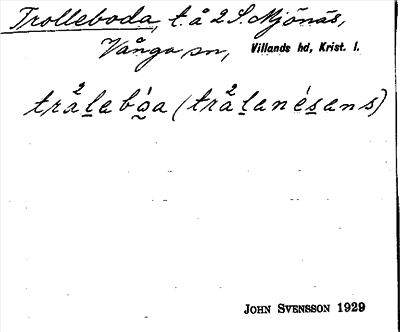 Trolleboda, t. å 2 S. Mjönäs,
Vånga sn, Villands hd, Krist. l.
trå2ḻeбó̰a (trå2ḻanés̱ans)
JOHN SVENSSON 1929